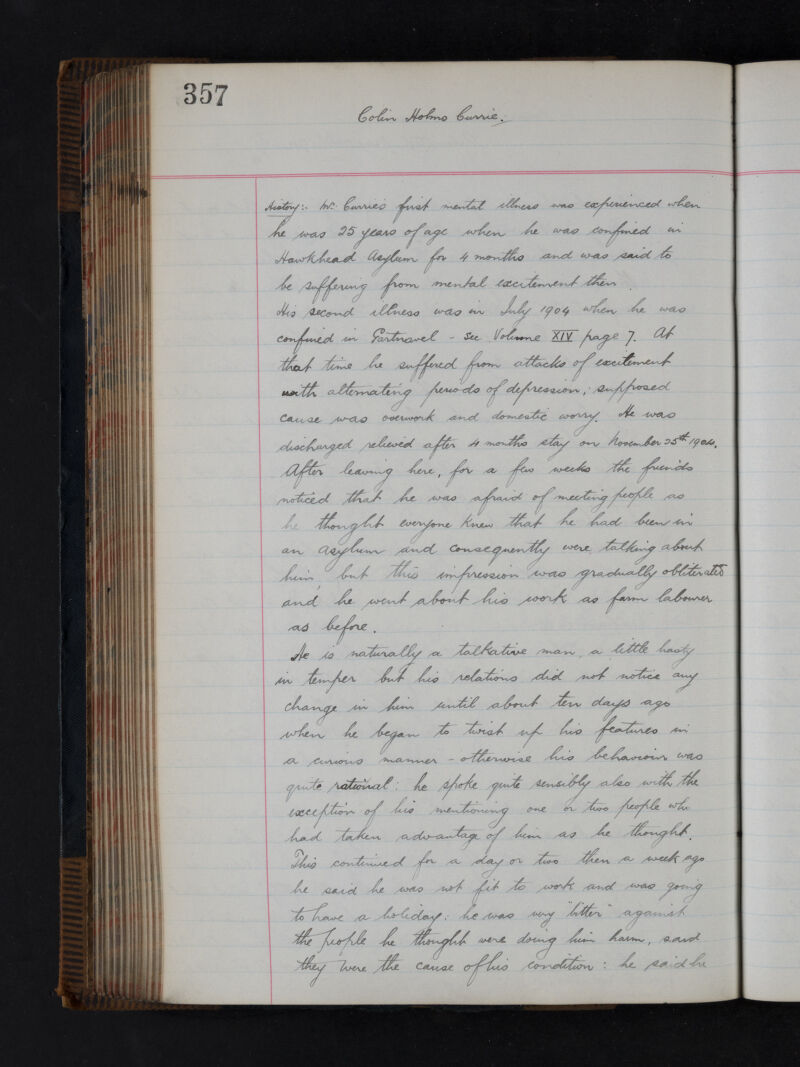 357
Colin Holms Currie.
History:. Mr. Currie's first mental illness was experienced when
he was 25 years of age when he was confined in
Hawkhead Asylum for 4 months and was said to
be suffering from mental excitement then.
His second illness was in July 1904 when he was
confined in Gartnavel - see Volume XIV page 7. At
that time he suffered from attacks of excitement
with alternating periods of depression; supposed
cause was overwork and domestic worry. He was
discharged relieved after 4 months stay on November 25th 1904.
After leaving here, for a few weeks the friends
noticed that he was afraid of meeting people as
he thought everyone knew that he had been in
an asylum and consequently were talking about
him, but this impression was gradually obliterated
and he went about his work as farm labourer
as before.
He is naturally a talkative man, a little hasty
in temper but his relations did not notice any
change in him until about ten days ago
when he began to twist up his features in
a curious manner - otherwise his behaviour was
quite rational: he spoke quite sensibly also with the
exception of his mentioning one or two people who
had taken advantage of him as he thought.
This continued for a day or two then a week ago
he said he was not fit to work and was going
to have a holiday: he was very "bitter" against
the people he thought were doing him harm, said
they were the cause of his condition: he said he